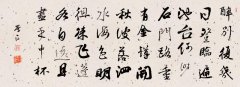 醉別復幾
日登臨遍
池台何時
石門路重
有金樽開
秋波落泗
水海色明
徂徠飛蓬
各自遠且
盡手中杯